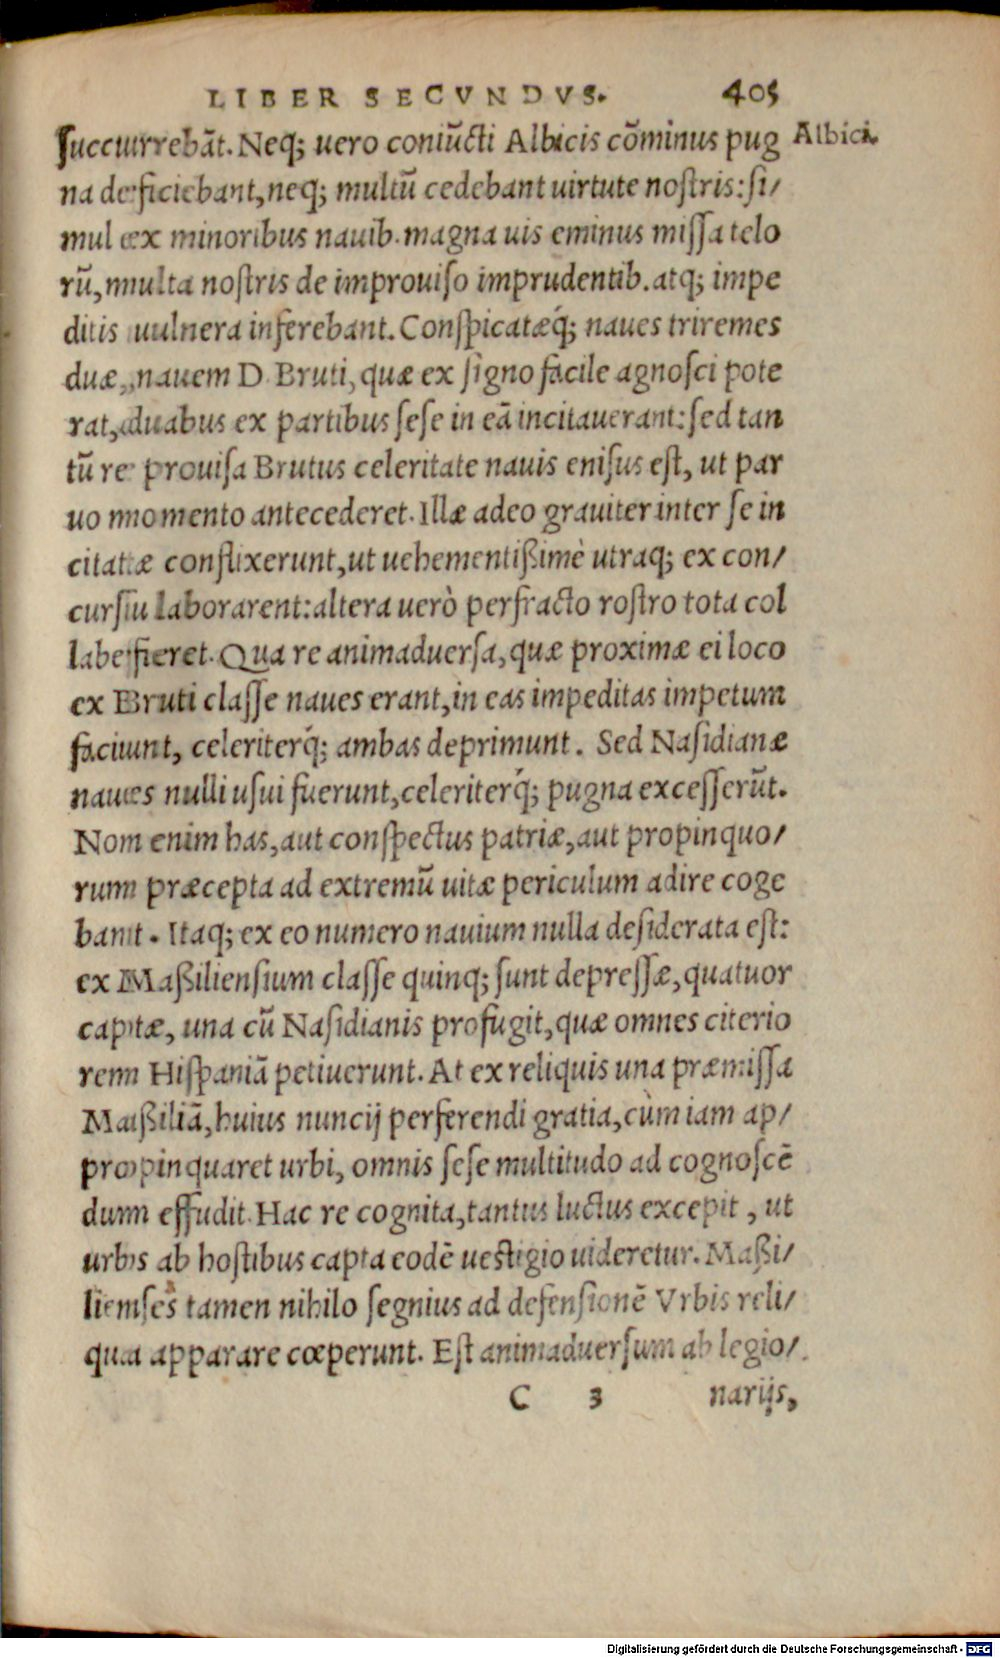 LIBER SECVNDVS. 405
succurrebāt. Neq; uero coniūcti Albicis cōminus pug
Albici.
na deficiebant, neq; multū cedebant uirtute nostris: si/
mul ex minoribus nauib. magna uis eminus missa telo
rū, multa nostris de improuiso imprudentib. atq; impe
ditis uulnera inferebant. Conspicatæq́; naues triremes
duæ, nauem D. Bruti, quæ ex signo facile agnosci pote
rat, duabus ex partibus sese in eā incitauerant: sed tan
tū re prouisa Brutus celeritate nauis enisus est, ut par
uo momento antecederet. Illæ adeo grauiter inter se in
citatæ conflixerunt, ut uehementißimè utraq; ex con/
cursu laborarent: altera uerò perfracto rostro tota col
labefieret. Qua re animaduersa, quæ proximæ ei loco
ex Bruti classe naues erant, in eas impeditas impetum
faciunt, celeriterq́; ambas deprimunt. Sed Nasidianæ
naues nulli usui fuerunt, celeriterq́; pugna excesserūt.
Non enim has, aut conspectus patriæ, aut propinquo/
rum præcepta ad extremū uitæ periculum adire coge
bant. Itaq; ex eo numero nauium nulla desiderata est:
ex Maßiliensium classe quinq; sunt depressæ, quatuor
captæ, una cū Nasidianis profugit, quæ omnes citerio
rem Hispaniā petiuerunt. At ex reliquis una præmissa
Maßiliā, huius nuncij perferendi gratia, cùm iam ap/
propinquaret urbi, omnis sese multitudo ad cognoscē
dum effudit. Hac re cognita, tantus luctus excepit, ut
urbs ab hostibus capta eodē uestigio uideretur. Maßi/
lienses tamen nihilo segnius ad defensionē Vrbis reli/
qua apparare cœperunt. Est animaduersum ab legio/
C 3 narijs,
Digitalisierung gefördert durch die Deutsche Forschungsgemeinschaft - DFG